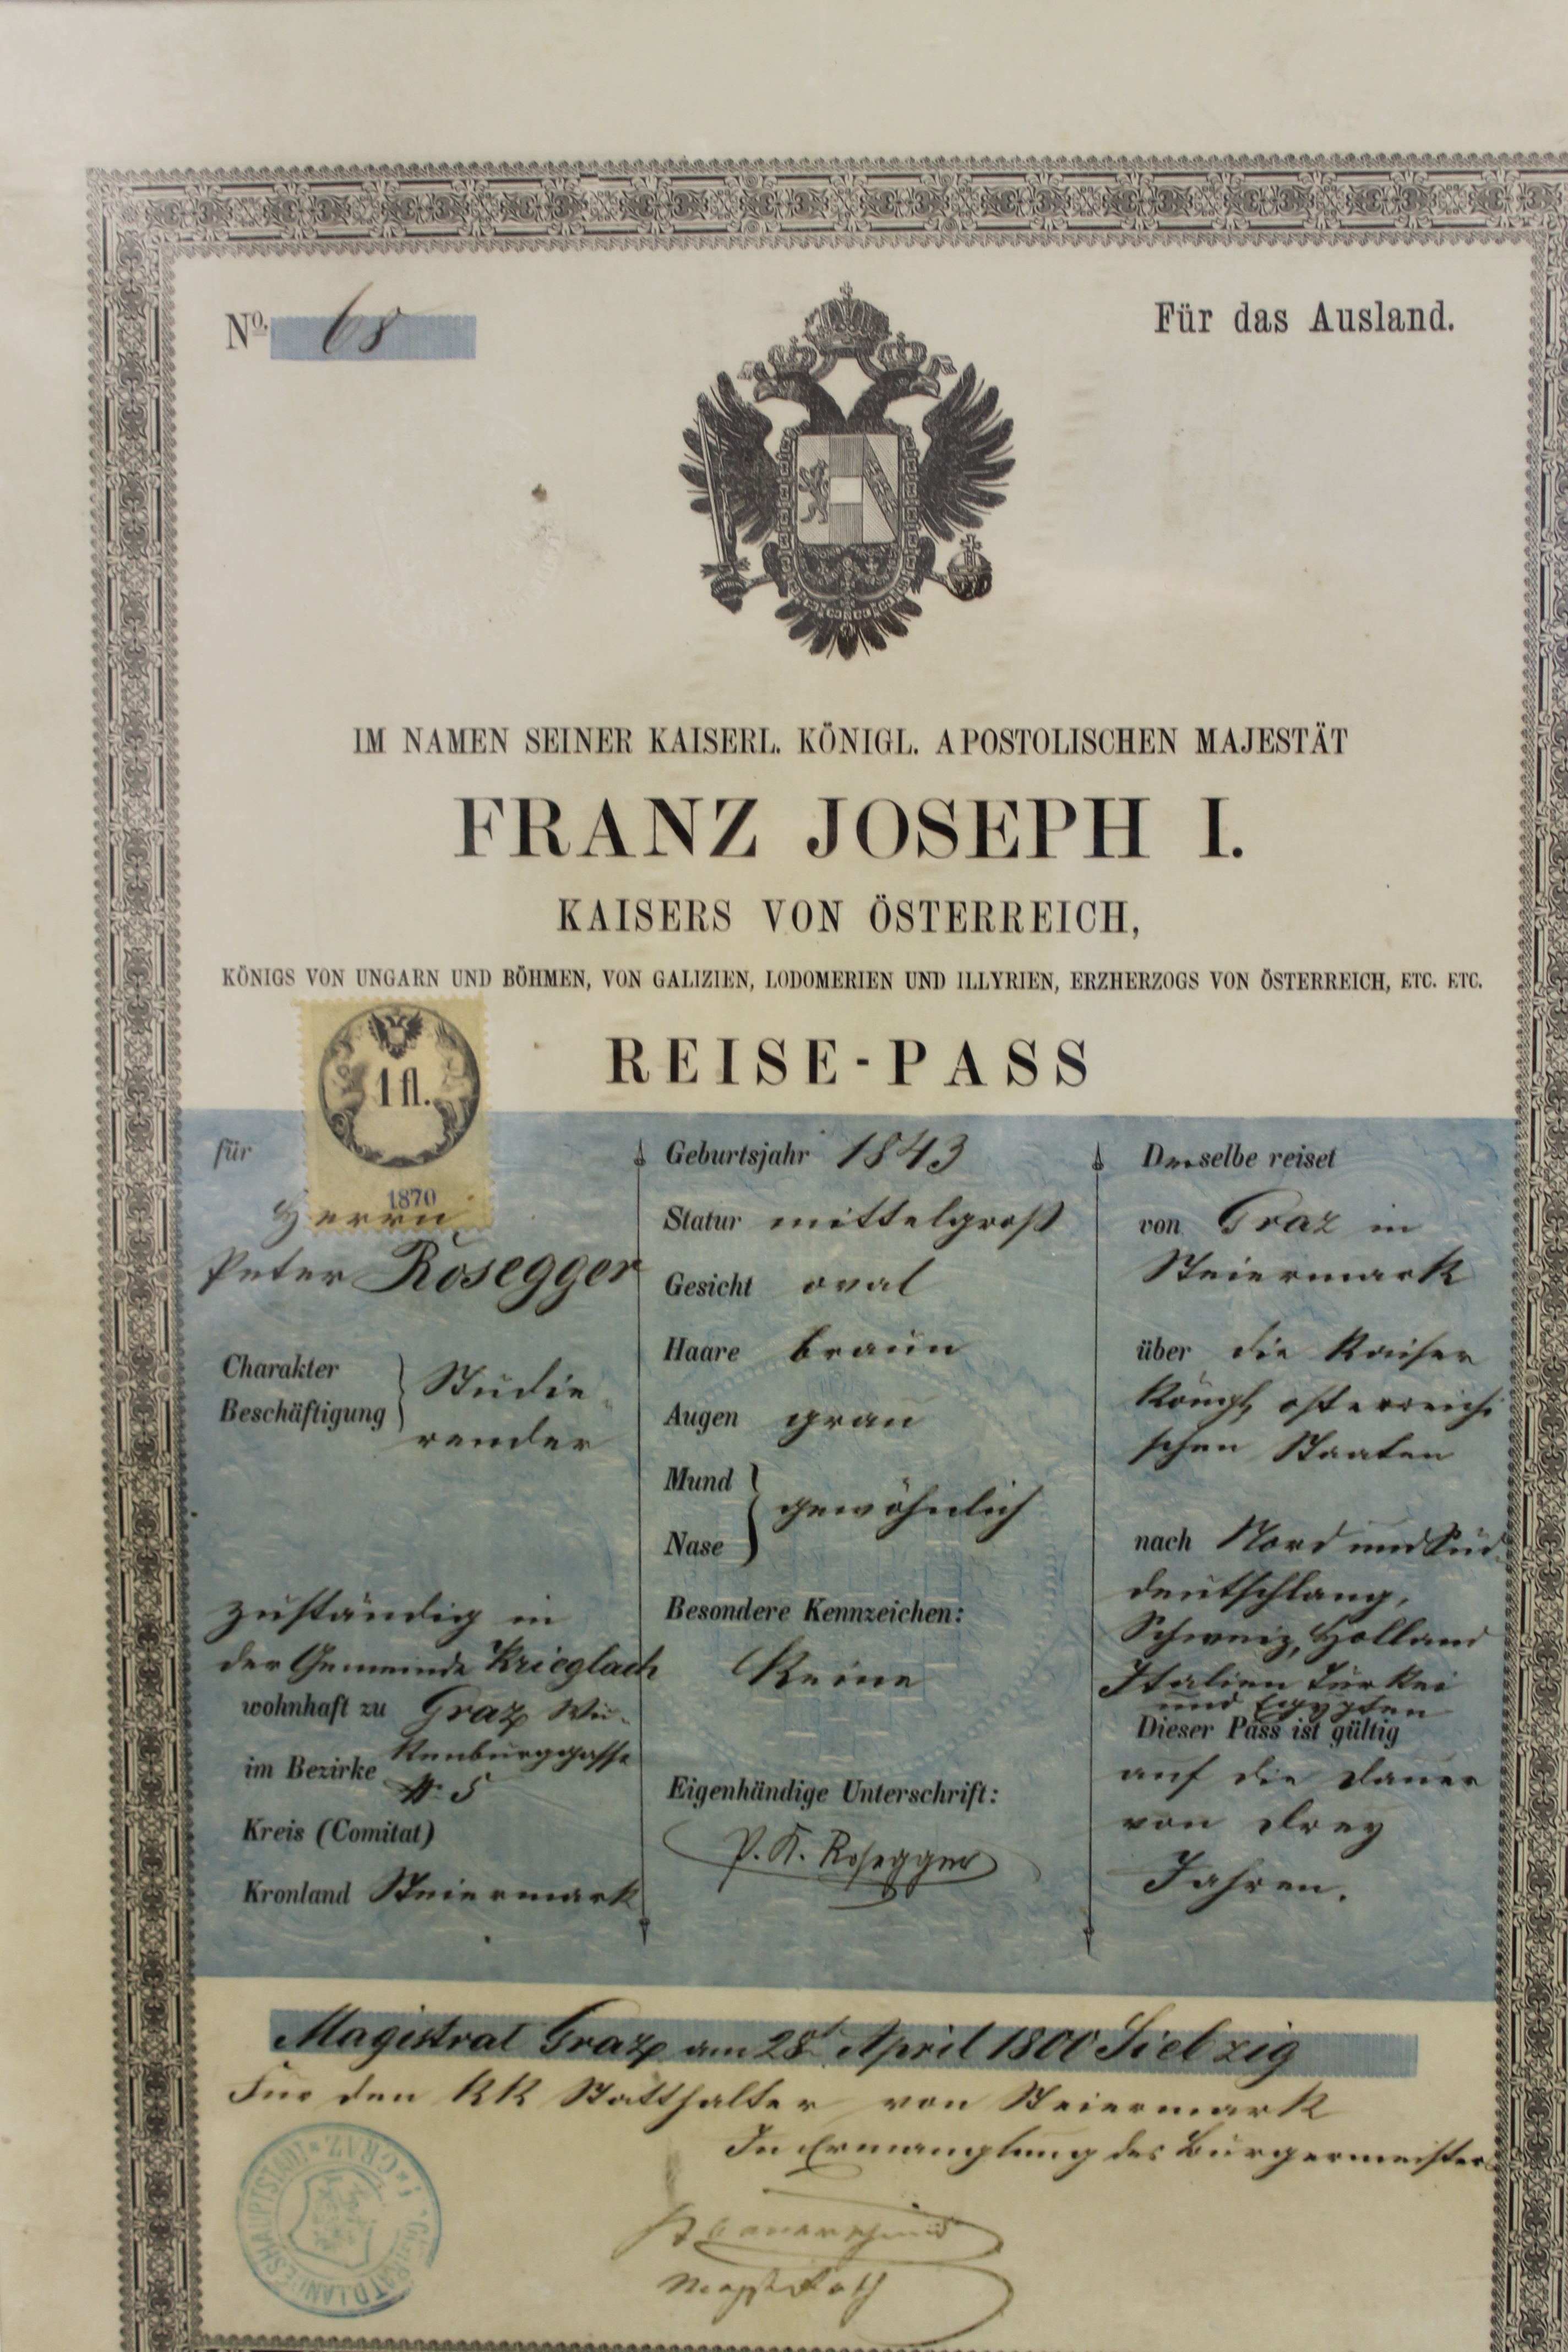 No. 68
Für das Ausland.
IM NAMEN SEINER KAISERL. KÖNIGL. APOSTOLISCHEN MAJESTÄT
FRANZ JOSEPH I.
KAISERS VON ÖSTERREICH,
KÖNIGS VON UNGARN UND BÖHMEN, VON GALIZIEN, LODOMERIEN UND ILLYRIEN, ERZHERZOGS VON ÖSTERREICH, ETC. ETC.
REISE-PASS
1 fl.
1870
für
Herrn
Peter Rosegger
Charakter
Beschäftigung
Studie
render
zuständig in
der Gemeinde Krieglach
wohnhaft zu Graz Wi-
im Bezirke kenburggasse
№ 5
Kreis (Comitat)
Kronland Steiermark
Geburtsjahr 1843
Statur mittelgroß
Gesicht oval
Haare braun
Augen grau
Mund
Nase
gewöhnlich
Besondere Kennzeichen:
Keine
Eigenhändige Unterschrift:
P. K. Rosegger
Derselbe reiset
von Graz in
Steiermark
über die Kaiser
Königl österreichi
schen Staaten
nach Nord und Süd
deutschlang,
Schweiz, Holland
Italien Türkei
und Egypten
Dieser Pass ist gültig
auf die Dauer
von drey
Jahren.
Magistrat Graz am 28t April 1800 Siebzig
Für den KK Statthalter von Steiermark
In Ermanglung des Bürgermeisters
LANDESHAUPTSTADT GRAZ